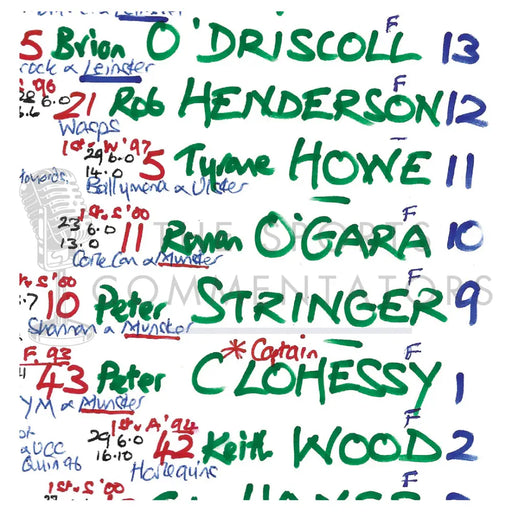 F
5 Brian O'DRISCOLL 13
rock & Leinster
'96 F
6.0 21 Rob HENDERSON 12
Wasps
1st v W '97
29 6.0 5 Tyrone HOWE 11
14.0
Ballymena & Ulster
1st v S '00 F
23 6.0 11 Ronan O'GARA 10
13.0
Cork Con & Munster
THE SPORTS COMMENTATORS
v S '00 F
10 Peter STRINGER 9
Shannon & Munster
* Captain
F. 93 F
43 Peter CLOHESSY 1
YM & Munster
1st v A '94 F
29 6.0 42 Keith WOOD 2
16.10
& UCC
Quin 96
Harlequins
1st v S '00 F